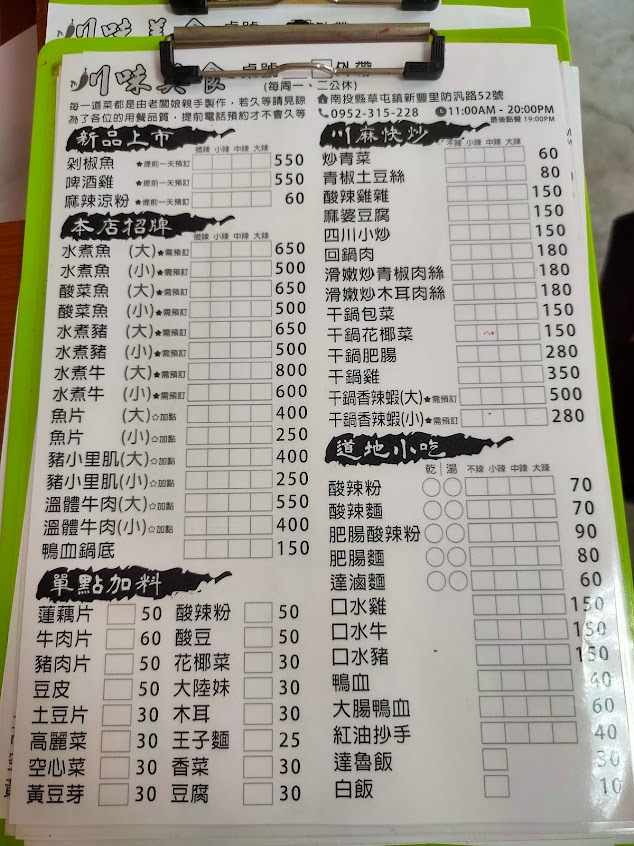 川味美食 桌號 外帶
(每周一、二公休)
每一道菜都是由老闆娘親手製作，若久等請見諒
為了各位的用餐品質，提前電話預約才不會久等
南投縣草屯鎮新豐里防汛路52號
0952-315-228 11:00AM - 20:00PM
最後點餐 19:00PM
新品上市 微辣 小辣 中辣 大辣
剁椒魚 ★提前一天預訂 550
啤酒雞 ★提前一天預訂 550
麻辣涼粉 ★提前一天預訂 60
本店招牌 微辣 小辣 中辣 大辣
水煮魚 (大)★需預訂 650
水煮魚 (小)★需預訂 500
酸菜魚 (大)★需預訂 650
酸菜魚 (小)★需預訂 500
水煮豬 (大)★需預訂 650
水煮豬 (小)★需預訂 500
水煮牛 (大)★需預訂 800
水煮牛 (小)★需預訂 600
魚片 (大)☆加點 400
魚片 (小)☆加點 250
豬小里肌(大)☆加點 400
豬小里肌(小)☆加點 250
溫體牛肉(大)☆加點 550
溫體牛肉(小)☆加點 400
鴨血鍋底 150
單點加料
蓮藕片 50 酸辣粉 50
牛肉片 60 酸豆 50
豬肉片 50 花椰菜 30
豆皮 50 大陸妹 30
土豆片 30 木耳 30
高麗菜 30 王子麵 25
空心菜 30 香菜 30
黃豆芽 30 豆腐 30
川麻快炒 不辣 小辣 中辣 大辣
炒青菜 60
青椒土豆絲 80
酸辣雞雜 150
麻婆豆腐 150
四川小炒 150
回鍋肉 180
滑嫩炒青椒肉絲 180
滑嫩炒木耳肉絲 180
干鍋包菜 150
干鍋花椰菜 150
干鍋肥腸 280
干鍋雞 350
干鍋香辣蝦(大)★需預訂 500
干鍋香辣蝦(小)★需預訂 280
道地小吃 乾 湯 不辣 小辣 中辣 大辣
酸辣粉 70
酸辣麵 70
肥腸酸辣粉 90
肥腸麵 80
達滷麵 60
口水雞 150
口水牛 150
口水豬 150
鴨血 40
大腸鴨血 60
紅油抄手 40
達魯飯 30
白飯 10